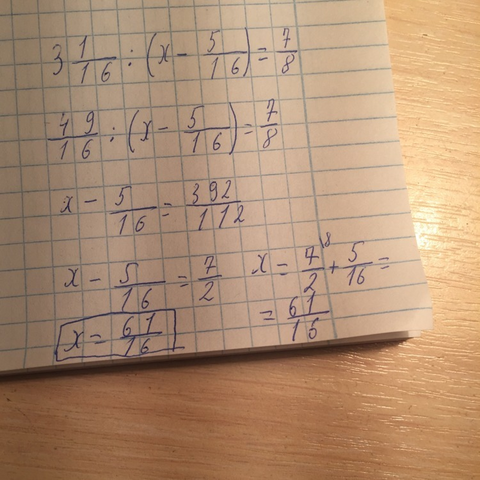 3 1/16 : (x - 5/16) = 7/8
49/16 : (x - 5/16) = 7/8
x - 5/16 = 392/112
x - 5/16 = 7/2
x = 7/2 ⁸ + 5/16 =
= 61/16
x = 61/16